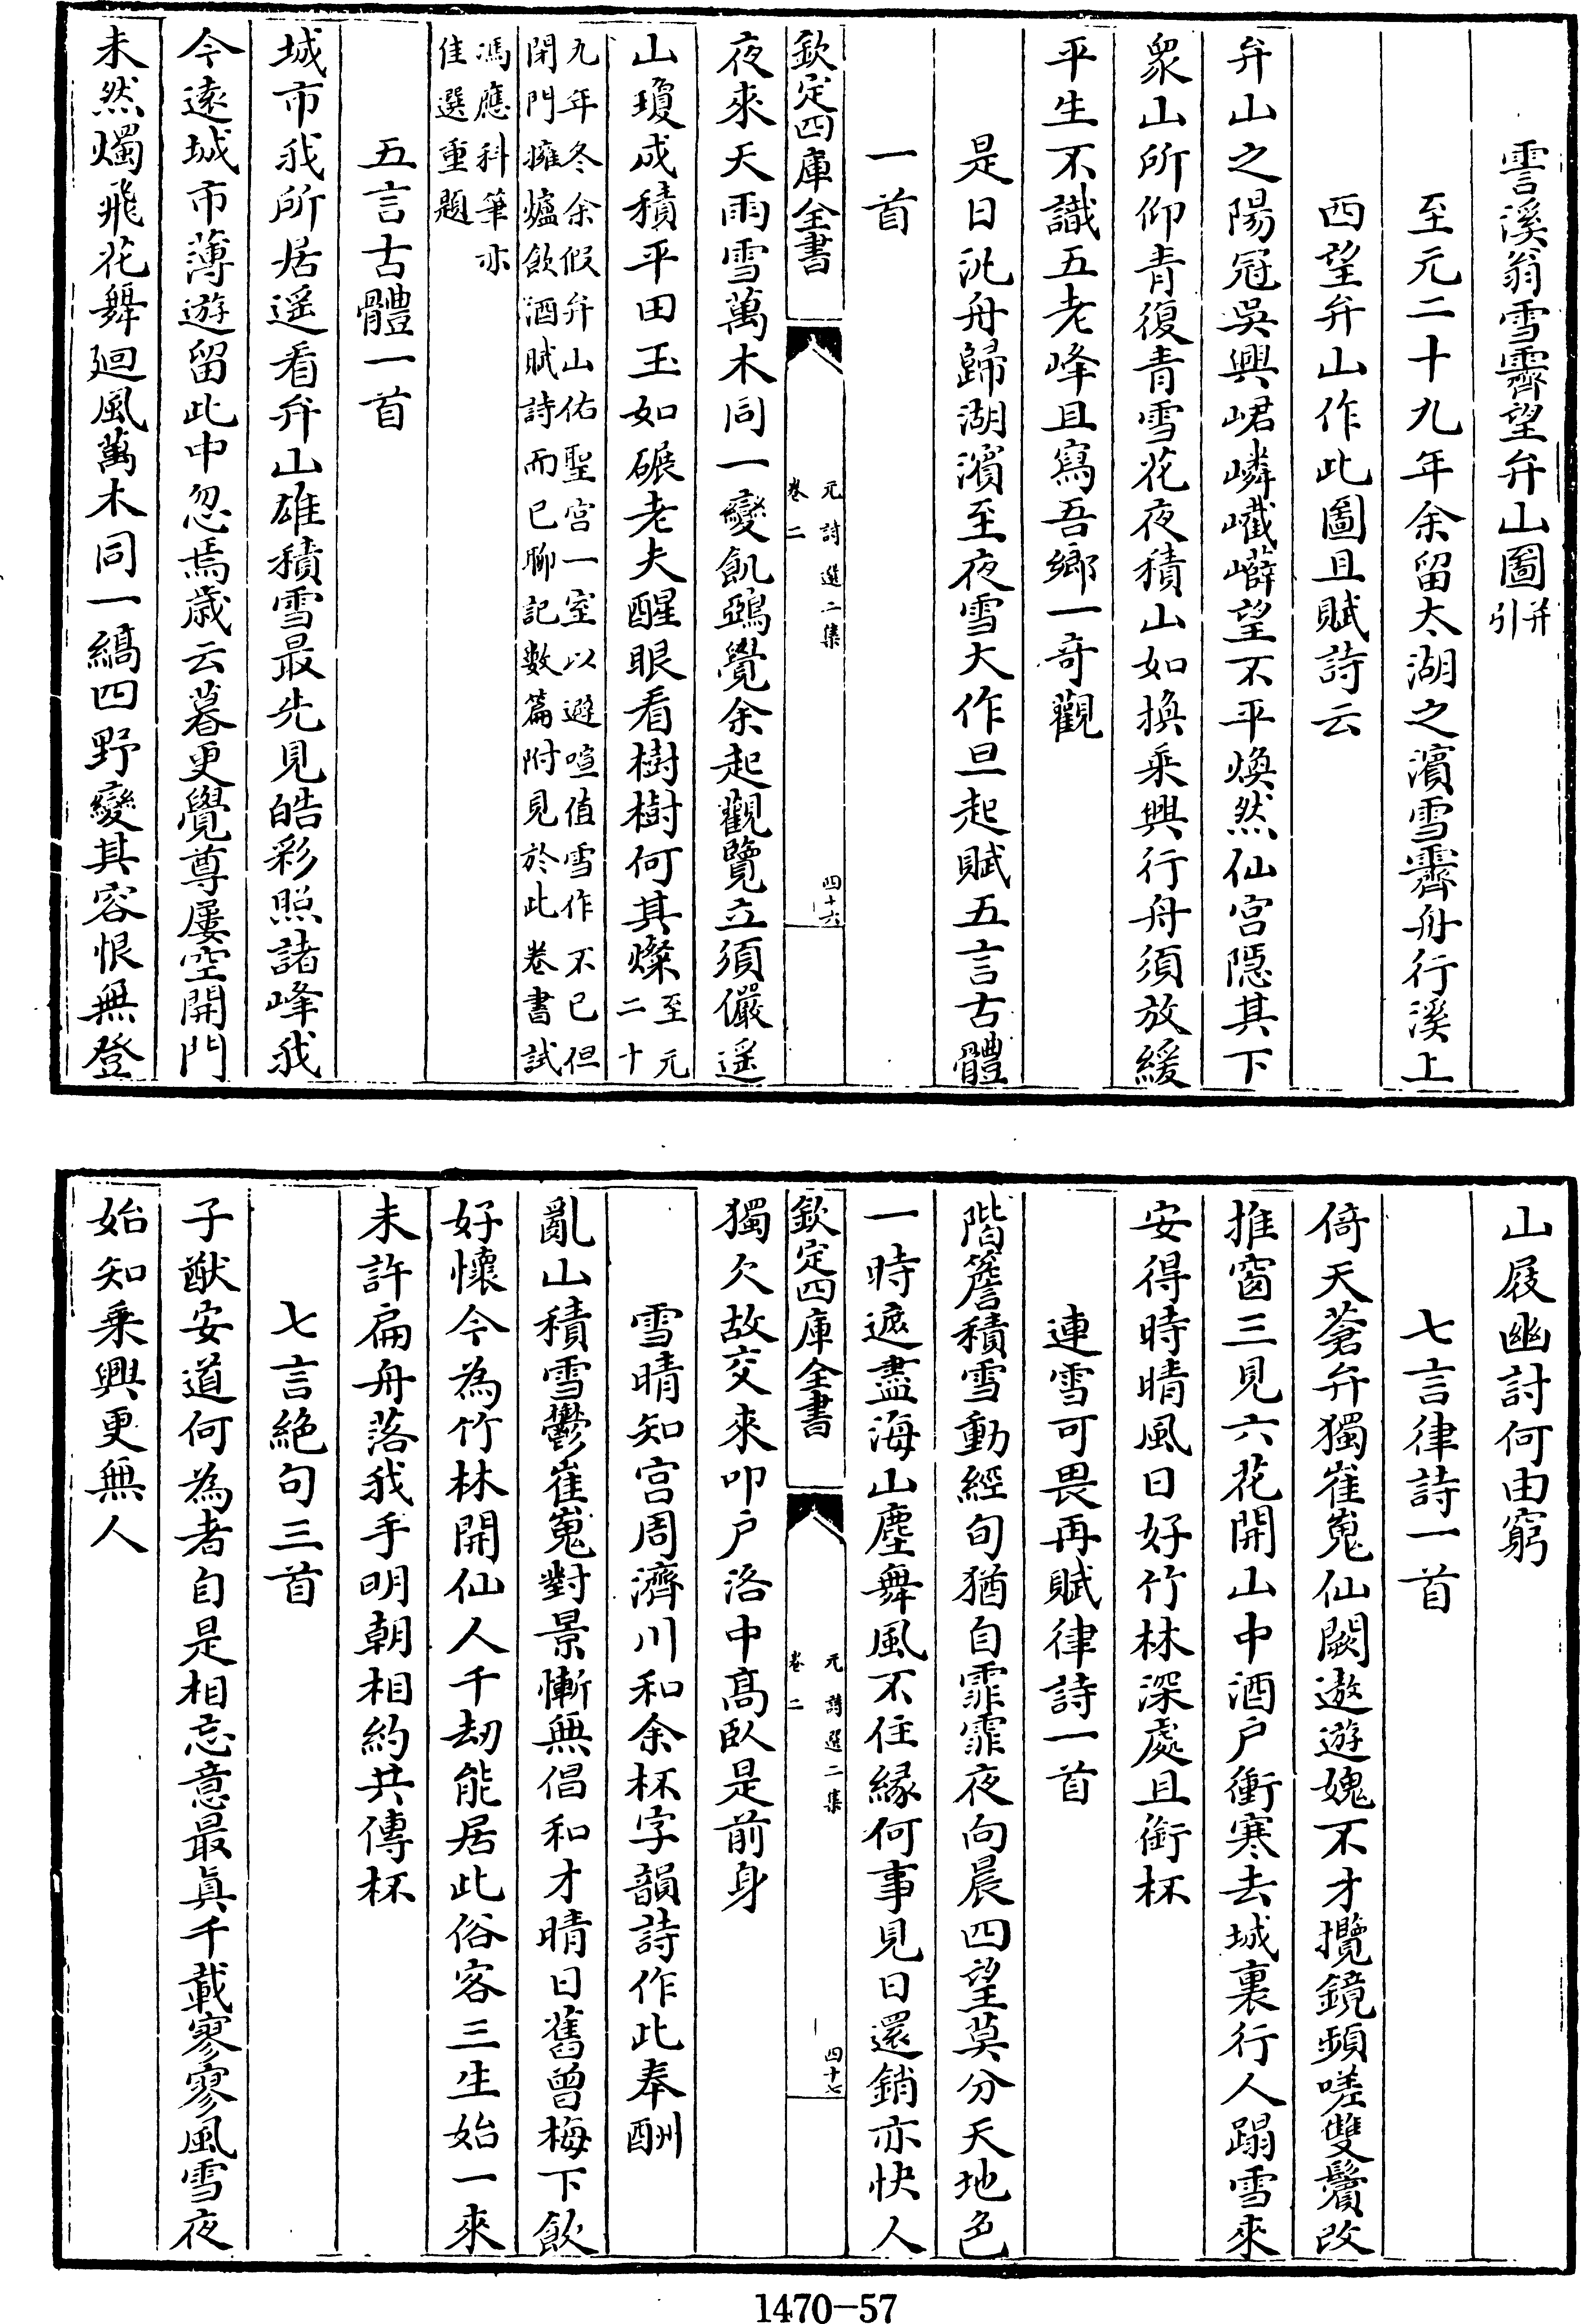 霅溪翁雪霽望弁山圖并引
至元二十九年余留太湖之濱雪霽舟行溪上
西望弁山作此圖且賦詩云
弁山之陽冠吳興峮嶙巀嶭望不平煥然仙宮隱其下
衆山所仰青復青雪花夜積山如換乘興行舟須放緩
平生不識五老峰且寫吾鄉一奇觀
是日汎舟歸湖濱至夜雪大作旦起賦五言古體
一首
欽定四庫全書
元詩選二集
卷二
四十六
夜來天雨雪萬木同一變飢鵶覺余起觀覽立須儼遥
山瓊成積平田玉如碾老夫醒眼看樹樹何其燦至元二十
九年冬余假弁山佑聖宮一室以避喧值雪作不已但
閉門擁爐飲酒賦詩而已聊記數篇附見於此卷書試
馮應科筆亦
佳選重題
五言古體一首
城市我所居遥看弁山雄積雪最先見皓彩照諸峰我
今遠城市薄遊留此中忽焉歲云暮更覺尊屢空開門
未然燭飛花舞廻風萬木同一縞四野變其容恨無登
山屐幽討何由窮
七言律詩一首
倚天蒼弁獨崔嵬仙闕遨遊媿不才攬鏡頻嗟雙鬢改
推窗三見六花開山中酒户衝寒去城裏行人蹋雪來
安得時晴風日好竹林深處且銜杯
連雪可畏再賦律詩一首
階簷積雪動經旬猶自霏霏夜向晨四望莫分天地色
一時遮盡海山塵舞風不住緣何事見日還銷亦快人
欽定四庫全書
元詩選二集
卷二
四十七
獨欠故交來叩户洛中高臥是前身
雪晴知宮周濟川和余杯字韻詩作此奉酬
亂山積雪鬱崔嵬對景慚無倡和才晴日舊曾梅下飲
好懷今為竹林開仙人千劫能居此俗客三生始一來
未許扁舟落我手明朝相約共傳杯
七言絶句三首
子猷安道何為者自是相忘意最真千載寥寥風雪夜
始知乘興更無人
1470-57